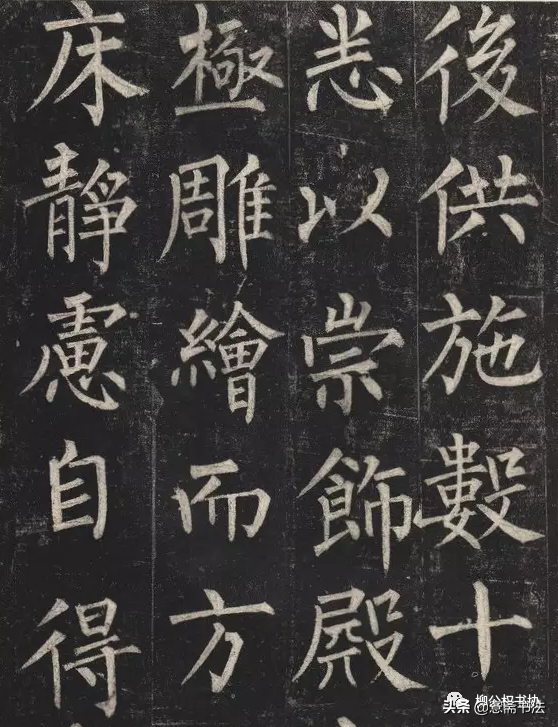 後供施數十
悉以崇飾殿
極雕繪而方
床靜慮自得
柳公权书协
头条 斋书法